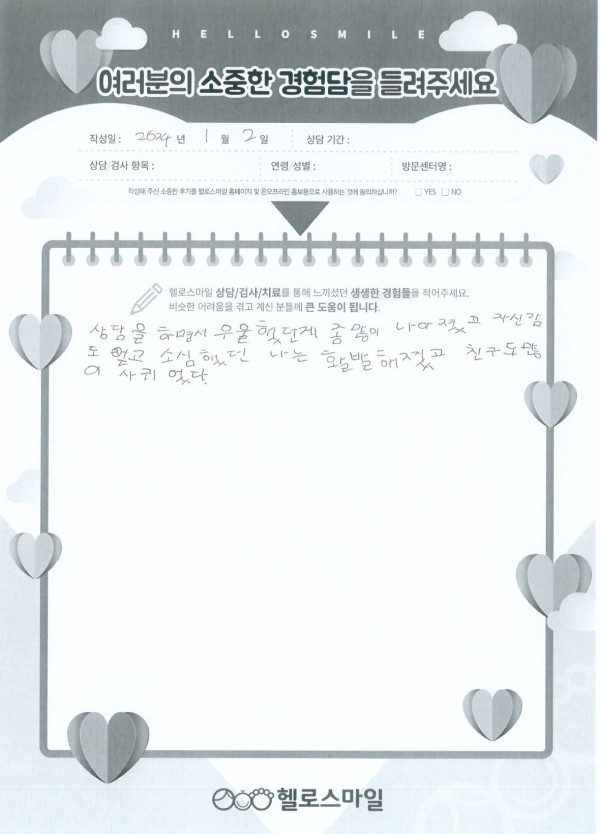 HELLOSMILE
여러분의 소중한 경험담을 들려주세요
작성일 : 2024 년 1 월 2 일 상담 기간 :
상담/검사 항목 : 연령/성별 : 방문센터명 :
작성해 주신 소중한 후기를 헬로스마일 홈페이지 및 온오프라인 홍보용으로 사용하는 것에 동의하십니까? □ YES □ NO
헬로스마일 상담/검사/치료를 통해 느끼셨던 생생한 경험들을 적어주세요.
비슷한 어려움을 겪고 계신 분들께 큰 도움이 됩니다.
상담을 하면서 우울했던게 좀 나아졌고 자신감
도 얻고 소심했던 나는 활발해졌고 친구도 많
이 사귀었다.
헬로스마일